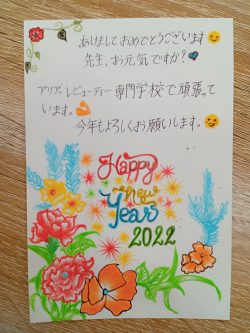 あけましておめでとうございます
先生、お元気ですか？
アリアレビューティー専門学校で頑張って
います。
今年もよろしくお願いします。
Happy
New
Year
2022